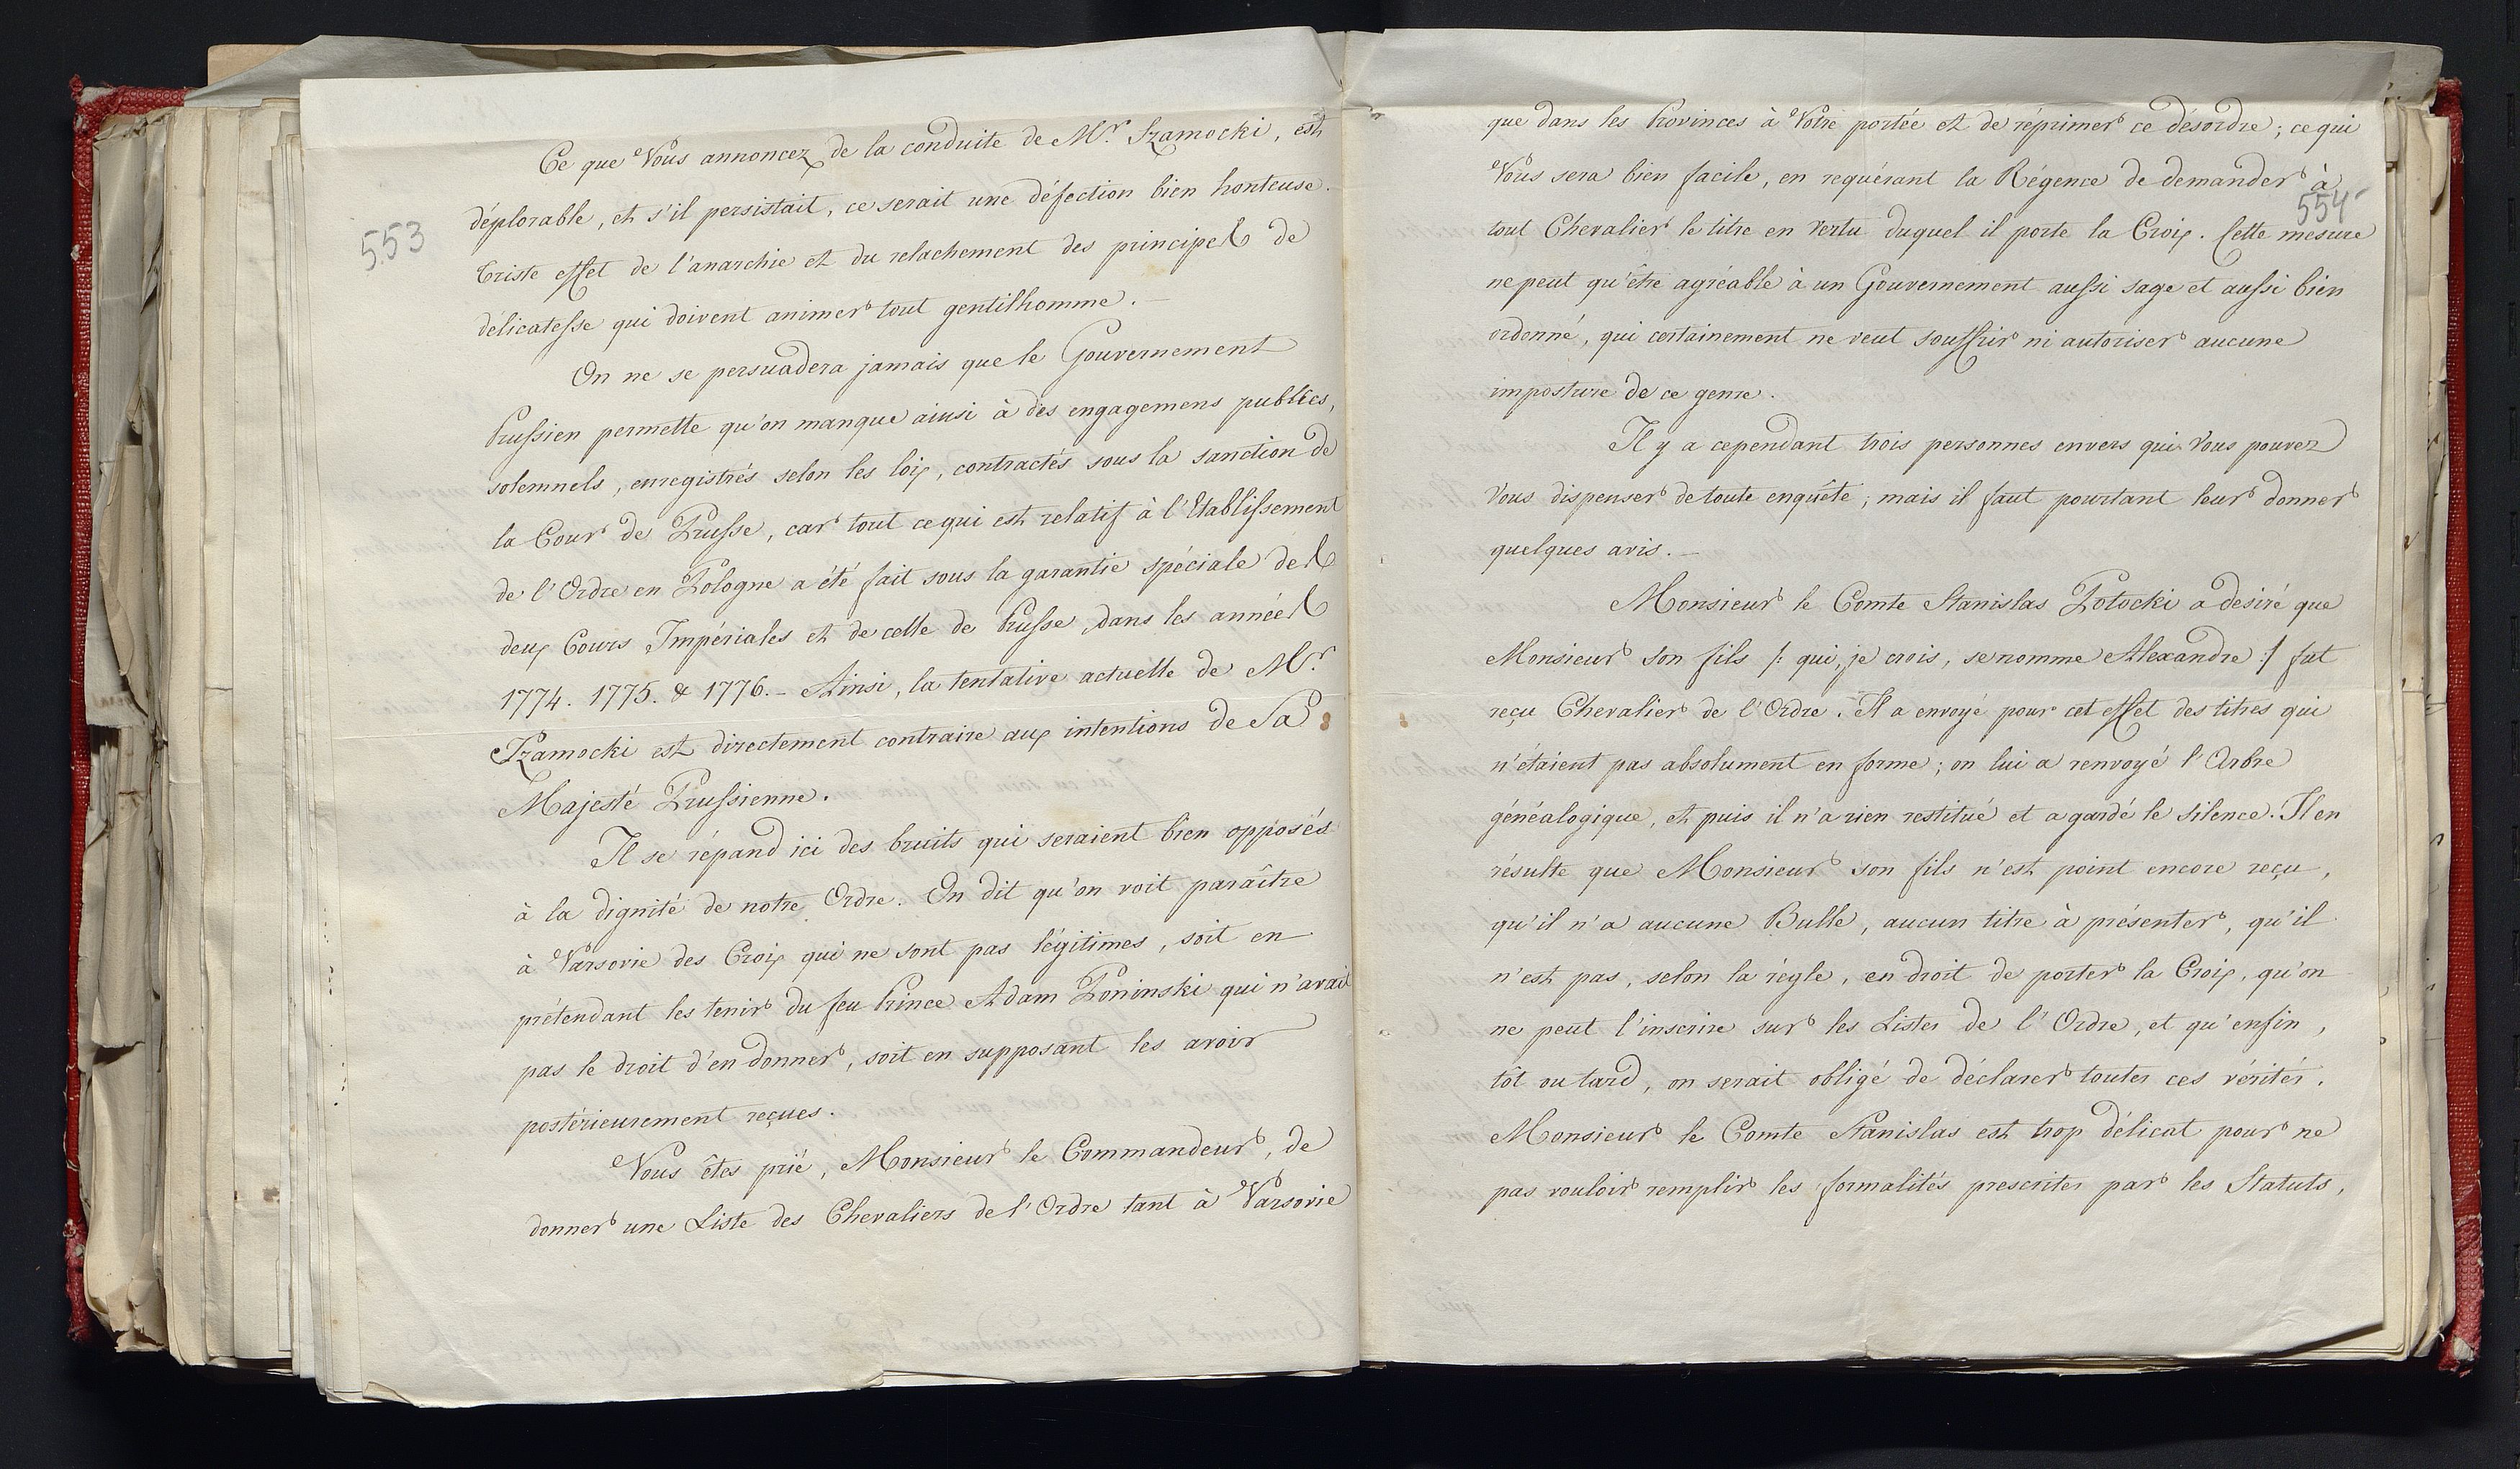 553
Ce que Vous annoncez de la conduite de Mr. Szamocki, est
déplorable, et s'il persistait, ce serait une défection bien honteuse.
Triste effet de l'anarchie et du relachement des principes de
délicatesse qui doivent animer tout gentilhomme. —
On ne se persuadera jamais que le Gouvernement
Prussien permette qu'on manque ainsi à des engagemens publics,
solemnels, enregistrés selon les loix, contractés sous la sanction de
la Cour de Prusse, car tout ce qui est relatif à l'Etablissement
de l'Ordre en Pologne a été fait sous la garantie spéciale des
deux Cours Impériales et de celle de Prusse, dans les années
1774. 1775. & 1776. – Ainsi, la tentative actuelle de Mr.
Szamocki est directement contraire aux intentions de Sa
Majesté Prussienne.
Il se répand ici des bruits qui seraient bien opposés
à la dignité de notre Ordre. On dit qu'on voit paraître
à Varsovie des Croix qui ne sont pas légitimes, soit en
prétendant les tenir du feu Prince Adam Poninski qui n'avait
pas le droit d'en donner, soit en supposant les avoir
postérieurement reçues.
Vous êtes prié, Monsieur le Commandeur, de
donner une Liste des Chevaliers de l'Ordre tant à Varsovie
554
que dans les Provinces à Votre portée et de réprimer ce désordre; ce qui
Vous sera bien facile, en requérant la Régence de demander à
tout Chevalier le titre en vertu duquel il porte la Croix. Cette mesure
ne peut qu'être agréable à un Gouvernement aussi sage et aussi bien
ordonné, qui certainement ne veut souffrir ni autoriser aucune
imposture de ce genre.
Il y a cependant trois personnes envers qui Vous pouvez
Vous dispenser de toute enquête; mais il faut pourtant leur donner
quelques avis. —
Monsieur le Comte Stanislas Potocki a desiré que
Monsieur son fils /: qui, je crois, se nomme Alexandre :/ fut
reçu Chevalier de l'Ordre. Il a envoyé pour cet effet des titres qui
n'étaient pas absolument en forme; on lui a renvoyé l'Arbre
généalogique, et puis il n'a rien restitué et a gardé le silence. Il en
résulte que Monsieur son fils n'est point encore reçu,
qu'il n'a aucune Bulle, aucun titre à présenter, qu'il
n'est pas, selon la règle, en droit de porter la Croix, qu'on
ne peut l'inscrire sur les Listes de l'Ordre, et qu'enfin,
tôt ou tard, on serait obligé de déclarer toutes ces vérités.
Monsieur le Comte Stanislas est trop délicat pour ne
pas vouloir remplir les formalités prescrites par les Statuts,